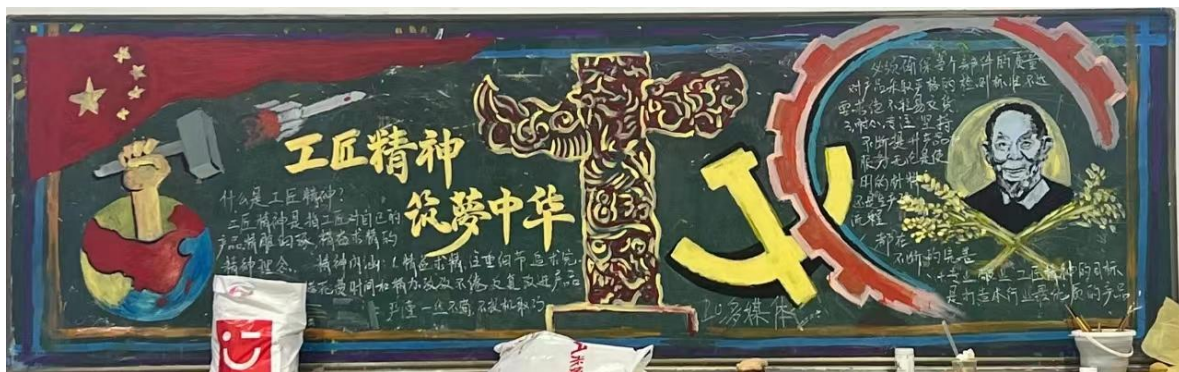 工匠精神
筑夢中华
什么是工匠精神?
工匠精神是指工匠对自己的
产品精雕细琢 精益求精的
精神理念. 精神内涵:1.精益求精 注重细节 追求完
花费时间和精力 孜孜不倦 反复改进产品
严谨 一丝不苟 不投机取巧
20多媒体
必须确保每个部件的质量
对产品采取严格的检测标准 不达
要求绝不轻易交货
3.耐心 专注 坚持
不断提升产品
无论是使
用的材料
还是生产
流程
都在
不断的完善
工匠精神的目标
是打造本行业最优质的产品